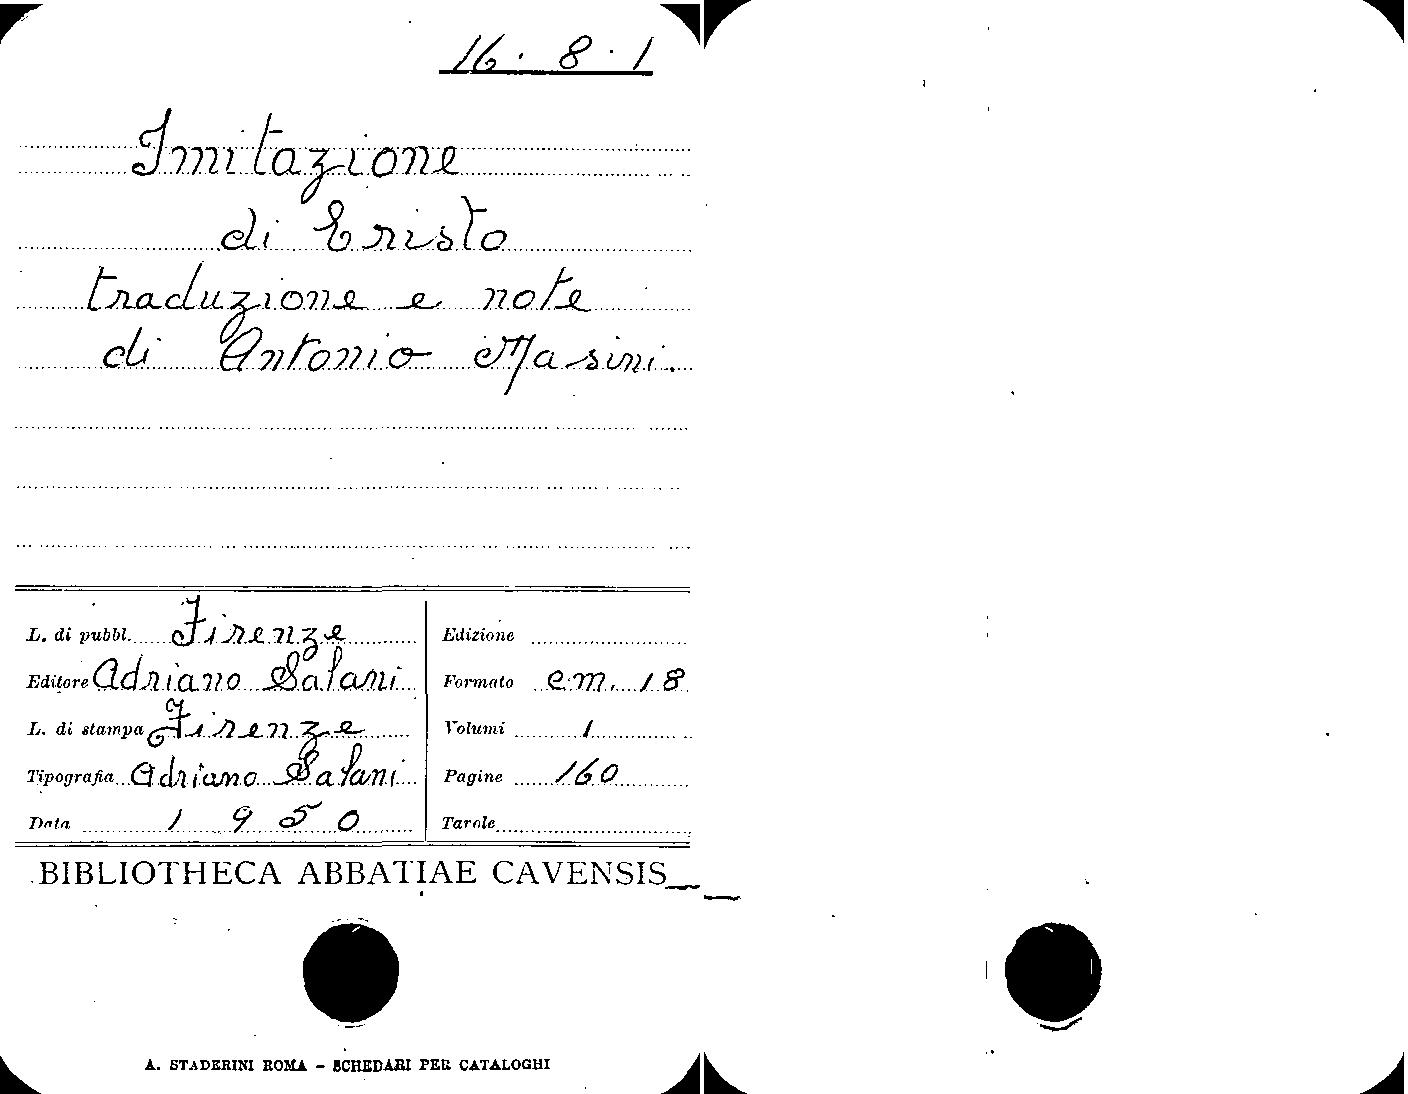 16 · 8 · 1
Imitazione
di Cristo
traduzione e note
di Antonio Masini.
L. di pubbl. Firenze
Editore Adriano Salani
L. di stampa Firenze
Tipografia Adriano Salani
Data 1950
Edizione
Formato cm. 18
Volumi 1
Pagine 160
Tavole
BIBLIOTHECA ABBATIAE CAVENSIS
A. STADERINI ROMA - SCHEDARI PER CATALOGHI